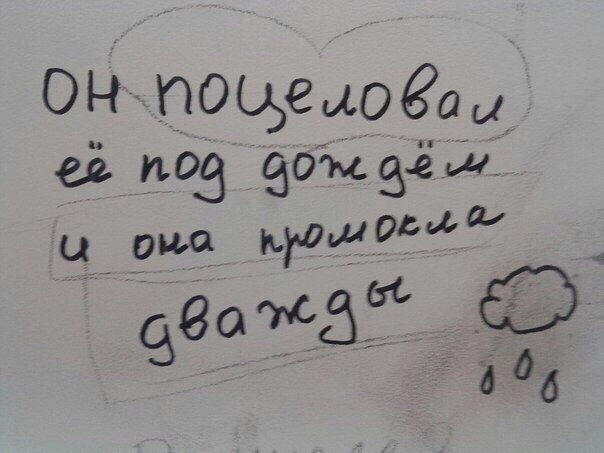 он поцеловал
её под дождём
и она промокла
дважды